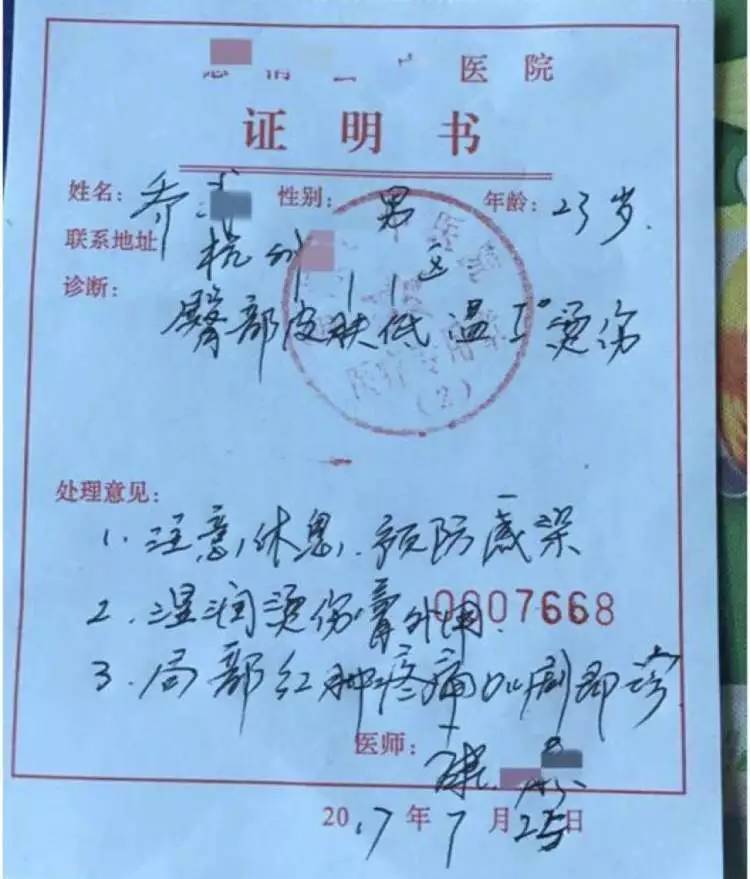 医院
证明书
姓名：乔 性别：男 年龄：23岁.
联系地址 杭州
诊断：
臀部皮肤低温I°烫伤
医疗专用章
(2)
处理意见：
1. 注意休息, 预防感染
0007668
2. 湿润烫伤膏外用.
3. 局部红肿疼痛加剧即诊
医师：
2017年7月25日